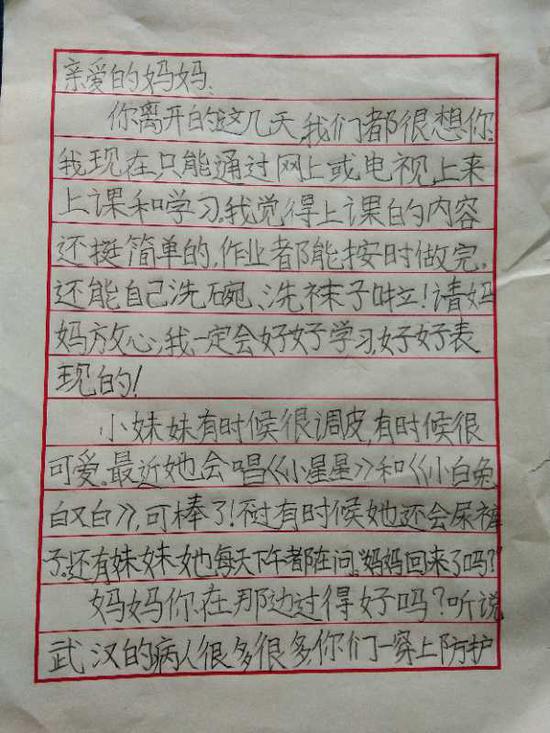 亲爱的妈妈:
你离开的这几天,我们都很想你.
我现在只能通过网上或电视上来
上课和学习.我觉得上课的内容
还挺简单的,作业都能按时做完,
还能自己洗碗、洗袜子哇!请妈
妈放心,我一定会好好学习,好好表
现的!
小妹妹有时候很调皮,有时候很
可爱.最近她会唱《小星星》和《小白兔
白又白》,可棒了!不过有时候她还会尿裤
子.还有妹妹她每天下午都在问:"妈妈回来了吗?"
妈妈你在那边过得好吗?听说
武汉的病人很多很多你们一穿上防护